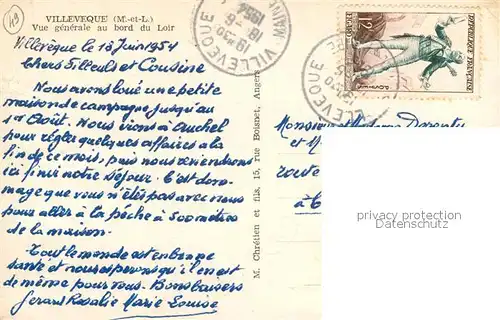 49
VILLEVEQUE (M.-et-L.)
Vue générale au bord du Loir
Villevêque le 18 Juin 1954
Chers Filleuls et Cousine
Nous avons loué une petite
maison de campagne jusqu'au
1er Août. Nous irons à Auchel
pour régler quelques affaires a la
fin de ce mois, puis nous reviendrons
ici finir notre séjour. C'est dom-
mage que vous n'êtes pas avec nous
pour aller à la pêche à 500 mètres
de la maison.
Tout le monde est en bonne
santé et nous espérons qu'il en est
de même pour vous. Bons baisers
Gerard Rosalie Marie Louise
M. Chrétien et fils, 15, rue Boisnet, Angers
VILLEVEQUE
1954
18-6
12F
REPUBLIQUE FRANÇAISE
VILLEVEQUE
Monsieur et Madame
et M
route
à
privacy protection
Datenschutz